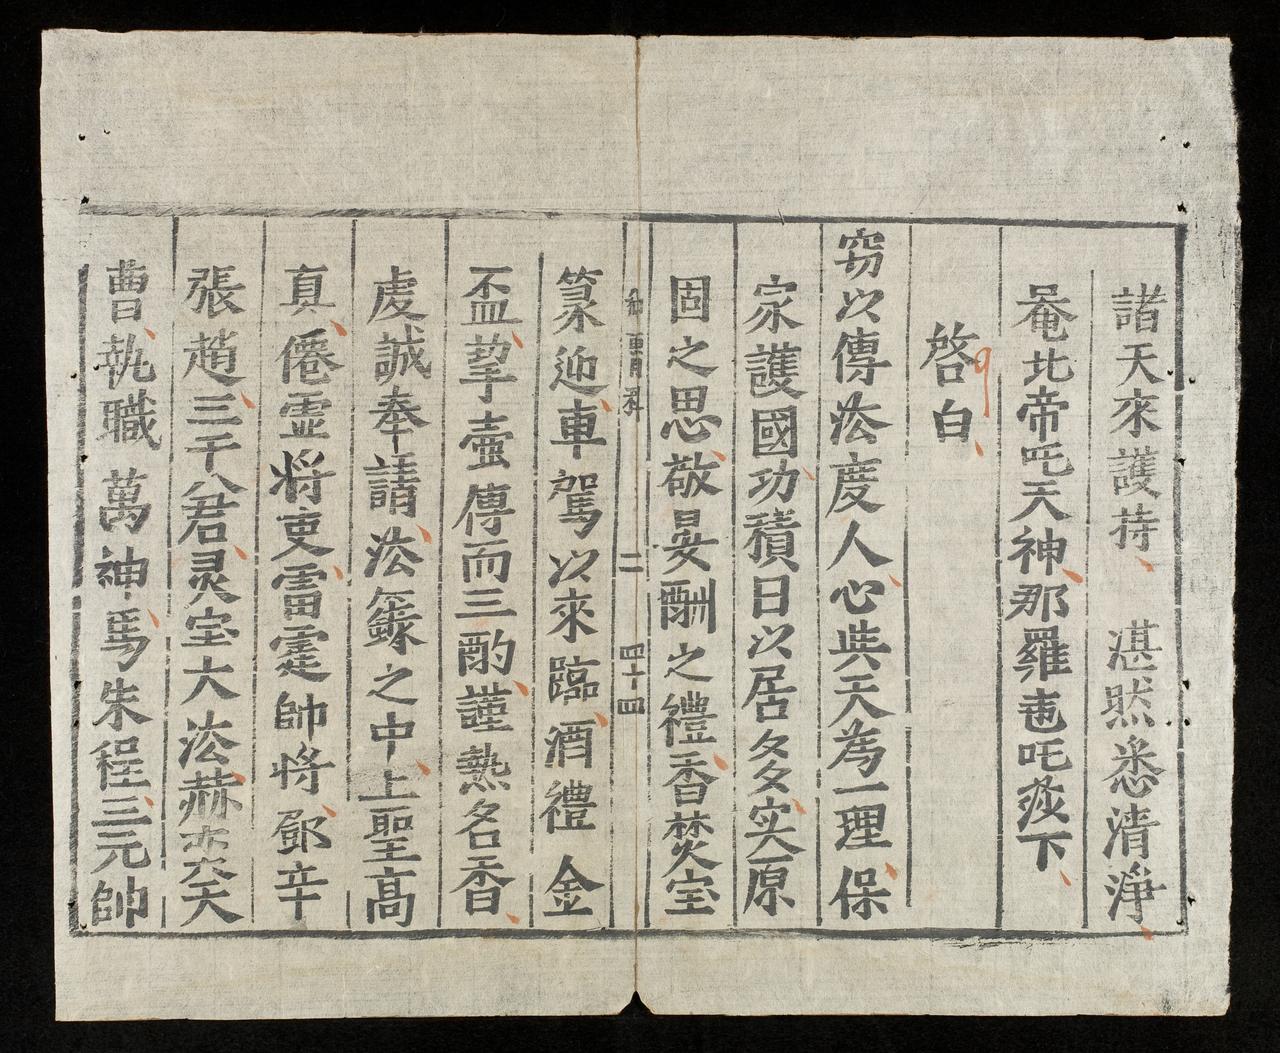 諸天來護持湛然悉清淨
菴北帝吒天神那羅吒㷋下
啓白
窃以傳㳒度人心與天為一理保
家護國功積日以居多实原
固之思敬晏酬之禮香焚宝
篆迎車駕以來臨酒禮金
二 四十四
盃挈壷傳而三酌謹热名香
虔誠奉請㳒籙之中上聖高
真僊霊将吏雷霆帥将鄧辛
張趙三千八君灵宝大㳒赫奕天
曹執職萬神馬朱程三元帥